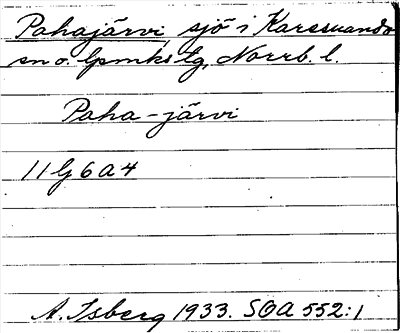 Pahajärvi, sjö i Karesuando
sn o. lpmks tg, Norrb. l.
Paha-järvi
11 G 6 a 4
A. Isberg 1933. SOA 552:1